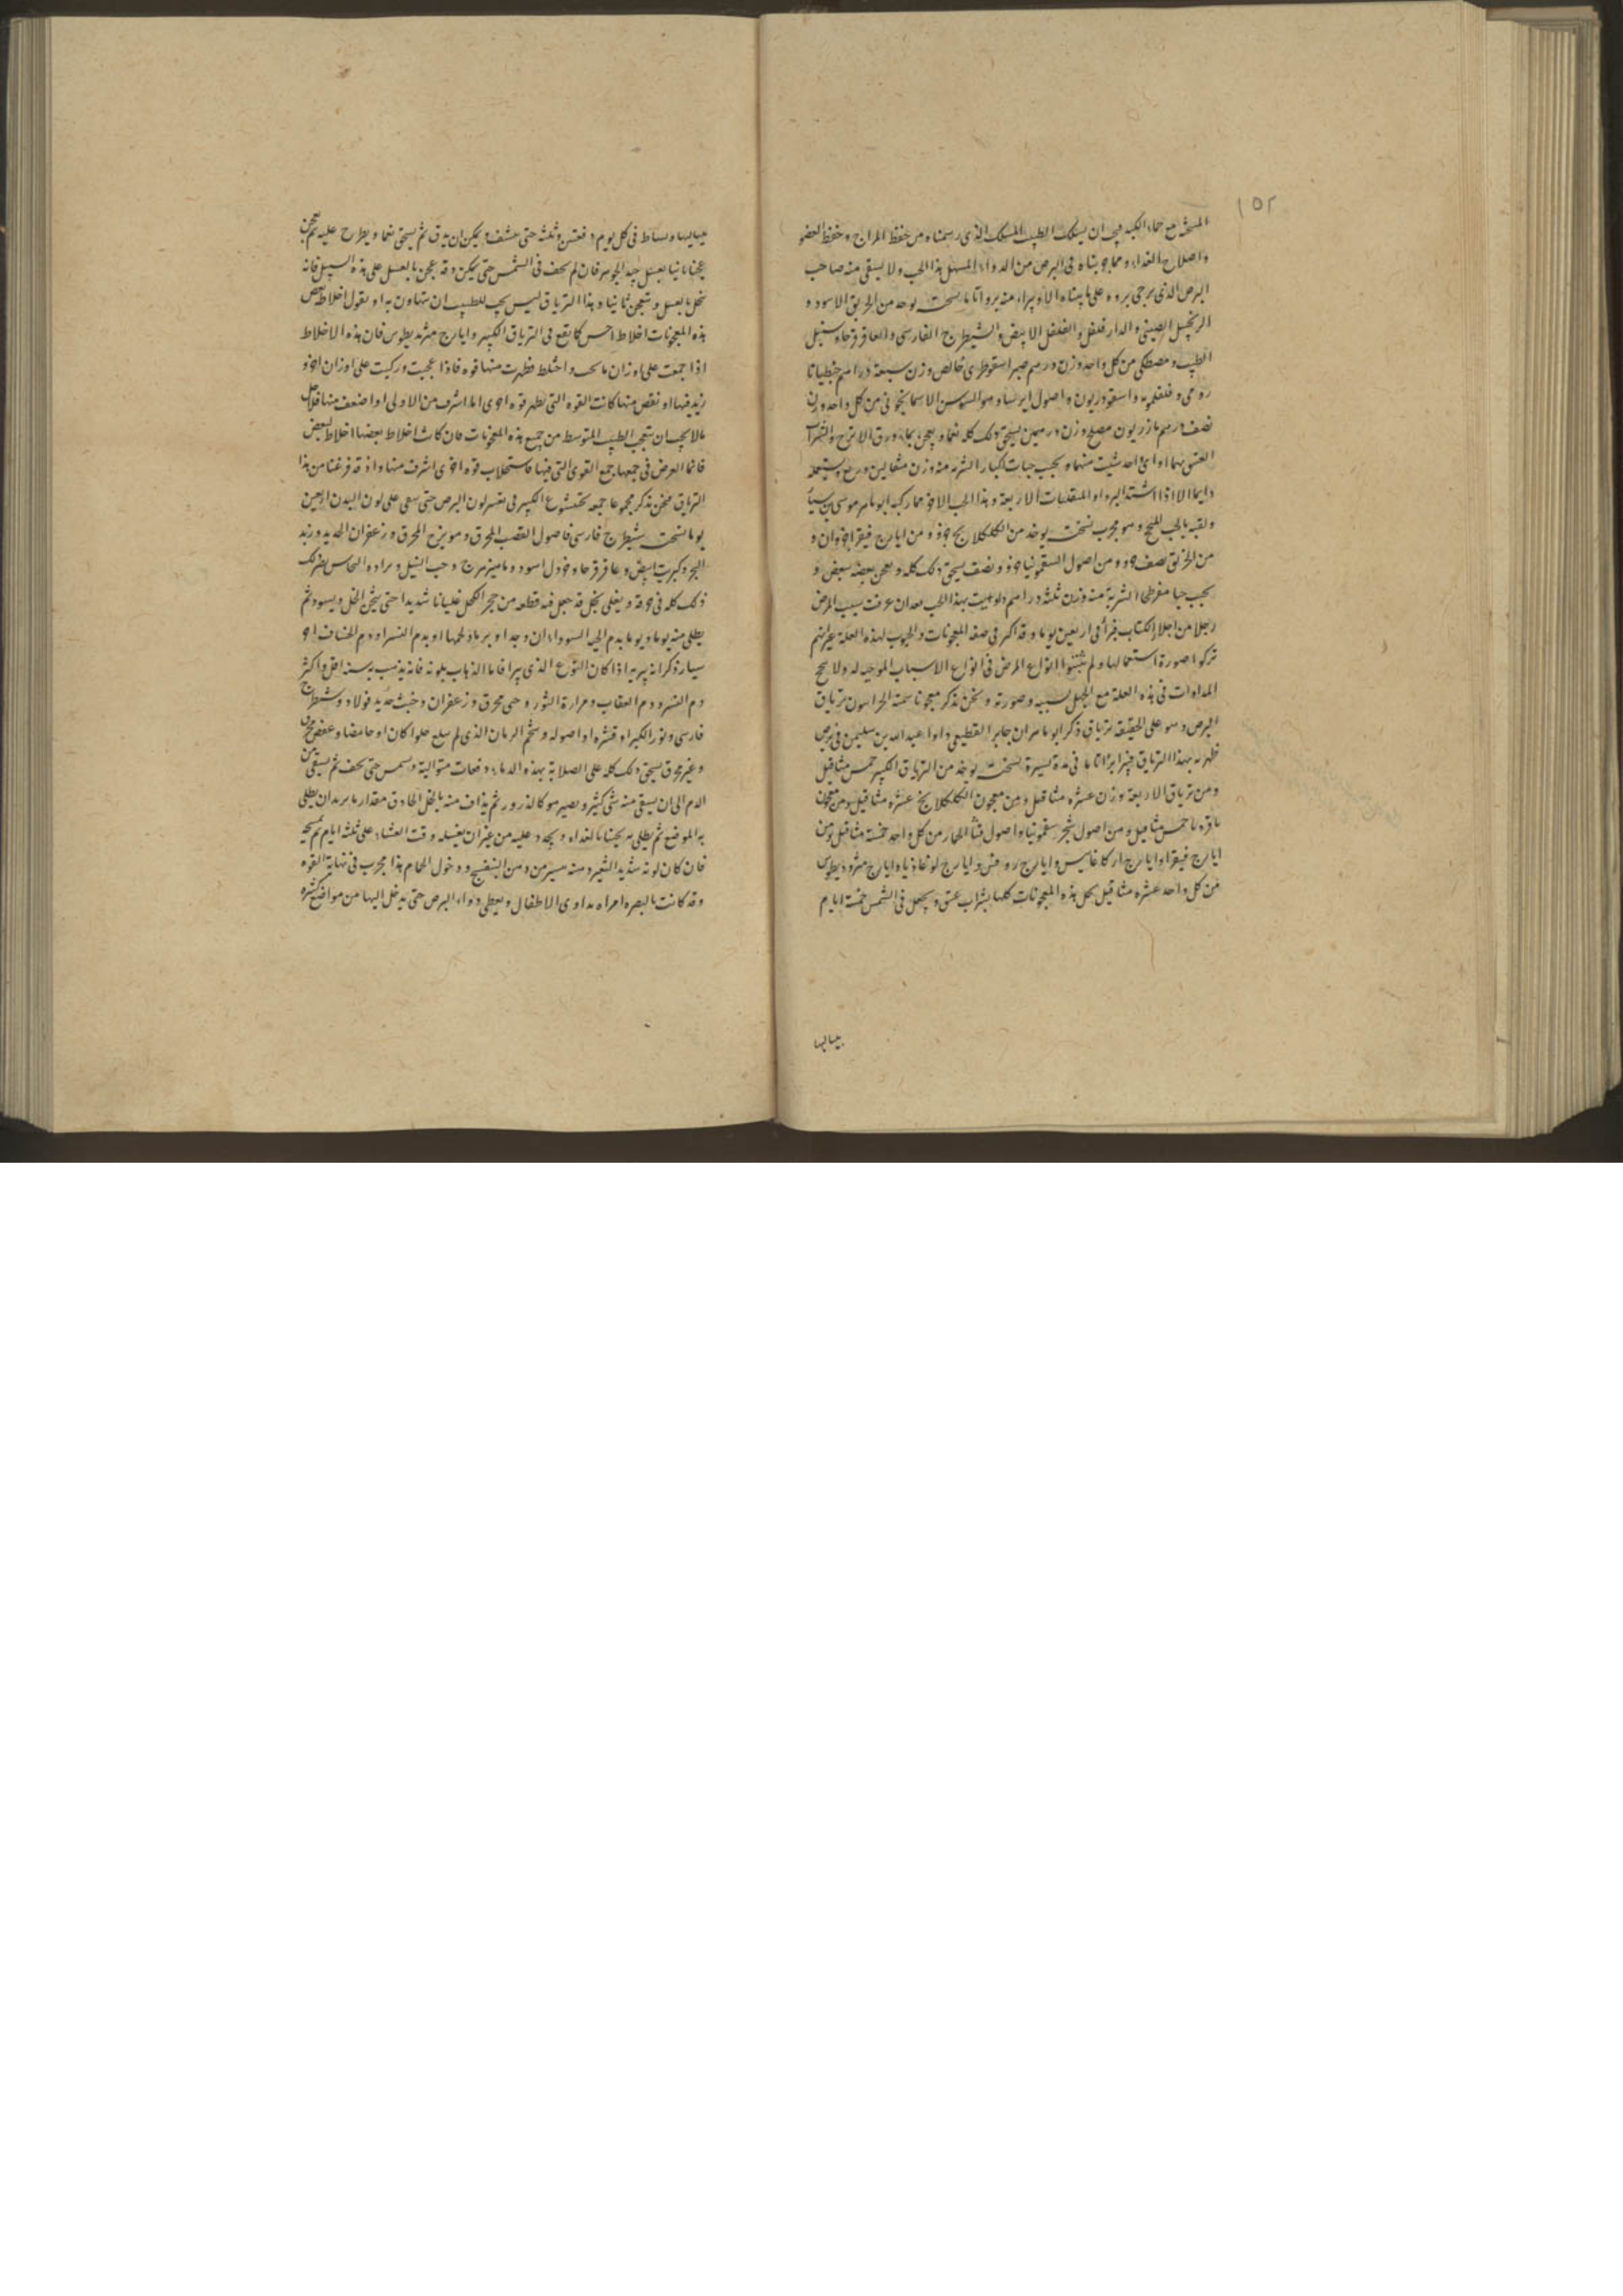 ١٥٢
المتخذ مع حماء الكبد فيجب ان يسلك الطبيب المسلك الذى رسمناه من حفظ المزاج وحفظ العضو
واصلاح الغداء ومما جربناه فى البرص من الدواء المسهل هذا الحب ولا يسقى منه صاحب
البرص الذى يرجى بروه على ما بيناه الا وبراء منه بروا تاما نسخته يوخد من الخربق الاسود و
الزنجبيل الصينى والدار فلفل والفلفل الابيض والشيطرج الفارسى والعاقرقرحا وسنبل
الطيب ومصطكى من كل واحد وزن درهم صبر اسقوطرى خالص وزن سبعة دراهم جنطيانا
رومى وفلفلمويه واسقوردیون واصول ايرسا وهو السوسن الاسمانجونى من كل واحد وزن
نصف درهم مازريون مصلح وزن درهمين يسحق ذلك كله نعما ويعجن بماء ورق الاترج والشراب
العتيق بهما او اى احد شيت منهما ويحبب حبات كبار الشربه منه وزن مثقالين وربع ويستعمله
دايما الا اذا اشتد البرد او المنقلبات الاربعة وهذا الحب الاخر مما ركبه ابو ماهر موسى بن سيار
ولقبه بالحب الملح وهو مجرب نسخته يوخد من الكلكلانج جزو ومن ايارج فيقرا جزوان و
من الخربق نصف جزو ومن اصول السقمونيا جزو ونصف يسحق ذلك كله ويعجن بعضه ببعض و
يحبب حبا مفرطحا الشربة منه وزن ثلثة دراهم داويت بهذا الحب بعد ان عرفت سبب المرض
رجلا من اجلا الكتاب فبرأ فى اربعين يوما وقد اكثر فى صفه المعجونات والحبوب لهذه العلة غير انهم
تركوا صورة استعمالها ولم يثبتوا انواع المرض فى انواع الاسباب الموجبه له ولا يصح
المداوات فى هذه العلة مع الجهل بسببه وصورته ونحن نذكر معجونا سمته الحرانيون ترياق
البرص وهو على الحقيقه ترياق ذكر ابو ماهر ان جابر القطيعى داوا عبد الله بن سليمن فى برص
ظهر به بهذا الترياق فبرا برا تاما فى مدة يسيرة نسخته يوخد من الترياق الكبير خمس مثاقيل
ومن ترياق الاربعة وزن عشره مثاقيل ومن معجون الكلكلانج عشره مثاقيل ومن معجون
خمس مثاقيل ومن اصول شجر سقمونيا واصول قثا الحمار من كل واحد خمسة مثاقيل ومن
ايارج فيقرا وايارج اركاغانيس وايارج روفس وايارج لوغاذيا وايارج مثروديطوس
من كل واحد عشره مثاقيل يحل هذه المعجونات كلها بشراب عتيق ويجعل فى الشمس خمسة ايام
بيساليها
بيساليها ويساط فى كل يوم دفعتين وثلثه حتى ينشف ويمكن ان يدق ثم يسحق نعما ويطرح عليه ثم يعجن
عجنا ثانيا بعسل جيد الجوهر فان لم يجف فى الشمس حتى يمكن دقه عجن بالعسل على هذه السبيل فانه
ينحل بالعسل وينعجن ثانيا وهذا الترياق ليس يجب للطبيب ان يتهاون به او يقول اخلاط بعض
هذه المعجونات اخلاط اخس كما يقع فى الترياق الكبير وايارج مثرديطوس فان هذه الاخلاط
اذا جمعت على اوزان ما واختلط ظهرت منها قوه فاذا عجنت وركبت على اوزان اخر و
زيد فيها او نقص منها كانت القوه التى يظهر قوه اخرى اما اشرف من الاولى او اضعف منها فلاجل
ما لا يجب ان يتعجب الطبيب المتوسط من جميع هذه المعجونات وان كانت اخلاط بعضها اخلاط لبعض
فانما الغرض فى جمعها جمع القوى التى فيها فاستجلاب قوه اخرى اشرف منها واذ قد فرغنا من هذا
الترياق فنحن نذكر مجموعا جمعه بختيشوع الكبير فى تغير لون البرص حتى يبقى على لون البدن اربعين
يوما نسخته شيطرج فارسى فاصول القصب المحرق وميويزج المحرق وزعفران الحديد وزبد
البحر وكبريت ابيض وعاقرقرحا وخردل اسود وماميزهرج وحب النيل وبرادة النحاس يصر لك
ذلك كله فى خرقه ويغلى بخل قد جعل فيه قطعه من حجر الكحل غليانا شديدا حتى يثخن الخل ويسود ثم
يطلى منه يوما ويوما بدم الحيه السوداء ان وجد او برماد لحمها او بدم النسر او دم الخشاف ابو
سيار ذكر انه يبريه اذا كان النوع الذى يبرا فاما الذاهب بلونه فانه يذهب به سنه اقل واكثر
دم النسر ودم العقاب ومرارة الثور وحى محرق وزعفران وخبث حديد فولاد وشيطرج
فارسى ونور الكبر او قشره او اصوله وشحم الرمان الذى لم يبلغ حلوا كان او حامضا وعفص محرق
وغير محرق يسحق ذلك كله على الصلاية بهذه الدماء دفعات متوالية ويشمس حتى يجف ثم يسقى من
الدم الى ان يسقى منه شى كثير ويصير هو كالذرور ثم يذاف منه بالخل الحاذق مقدار ما يريد ان يطلى
به الموضع ثم يطلى به بحيث بالغداه ويجدد عليه من غير ان يغسله وقت العشاء على ثلثه ايام ثم يمسحه
فان كان لونه شديد التغير دهنه بيسير من دهن البنفسج ودخول الحمام هذا مجرب فى نهاية القوه
وقد كانت بالبصره امراه تداوى الاطفال ويعطى دواء البرص حتى يدخل اليها من مواضع كثيره